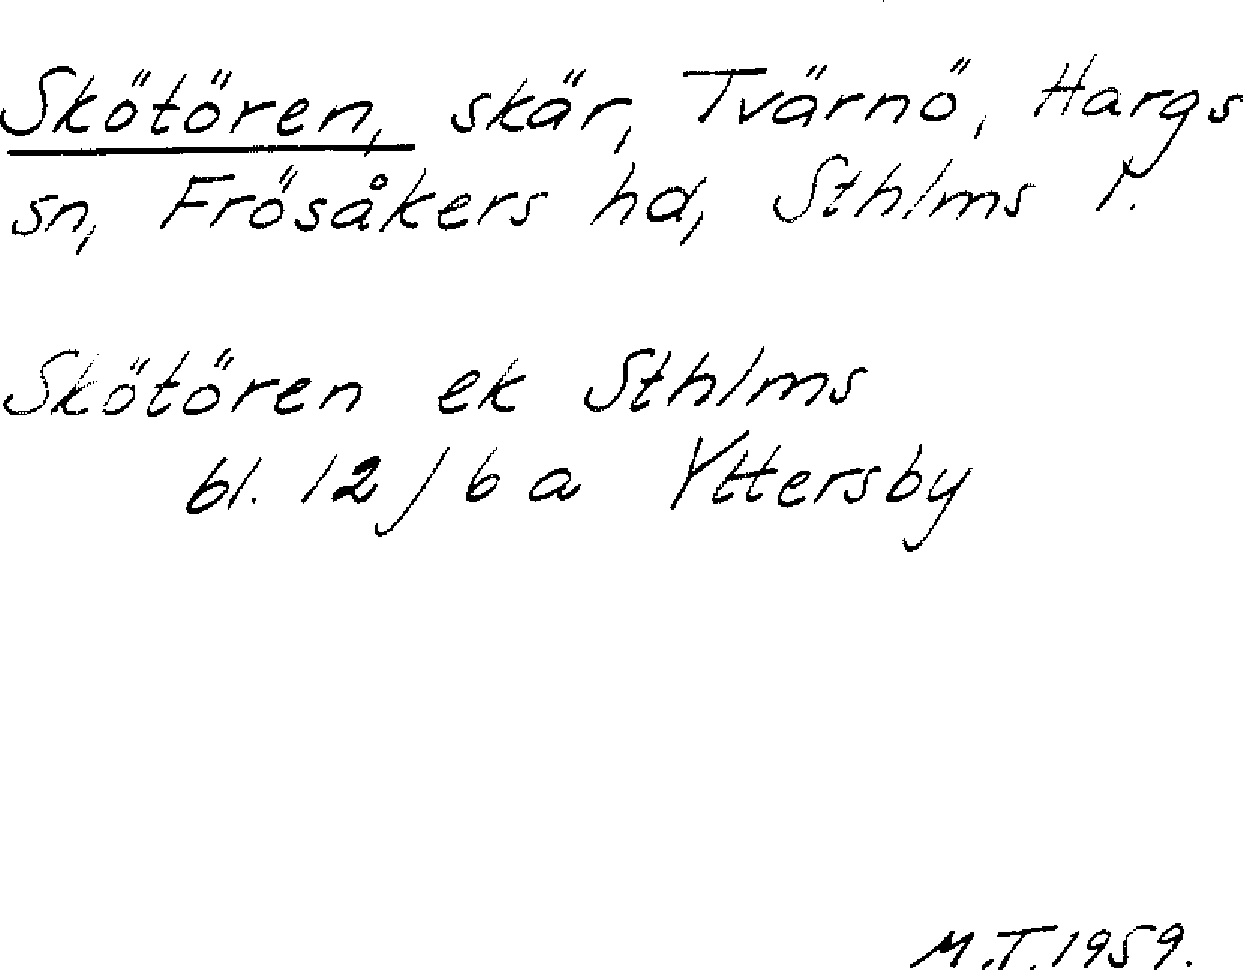 Skötören, skär, Tvärnö, Hargs
sn, Frösåkers hd, Sthlms l.
Skötören ek Sthlms
bl. 12 / 6 a Yttersby
M.T. 1959.